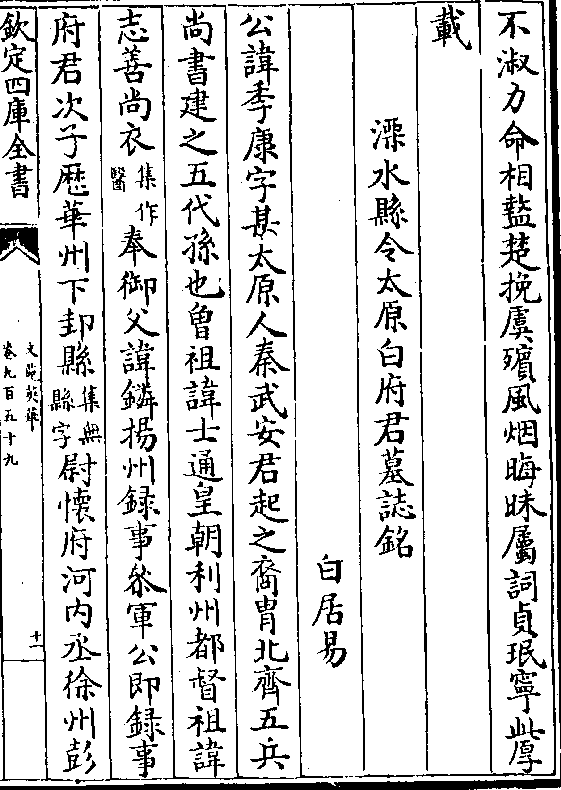 不淑力命相盭楚挽虞殯風烟晦昧屬詞貞珉寧此厚
載
溧水縣令太原白府君墓誌銘
白居易
公諱季康字某太原人秦武安君起之裔胄北齊五兵
尚書建之五代孫也曽祖諱士通皇朝利州都督祖諱
志善尚衣集作醫奉御父諱鏻揚州録事叅軍公即録事
府君次子歴華州下邽縣集無縣字尉懷府河内丞徐州彭
欽定四庫全書
文苑英華
卷九百五十九
十一